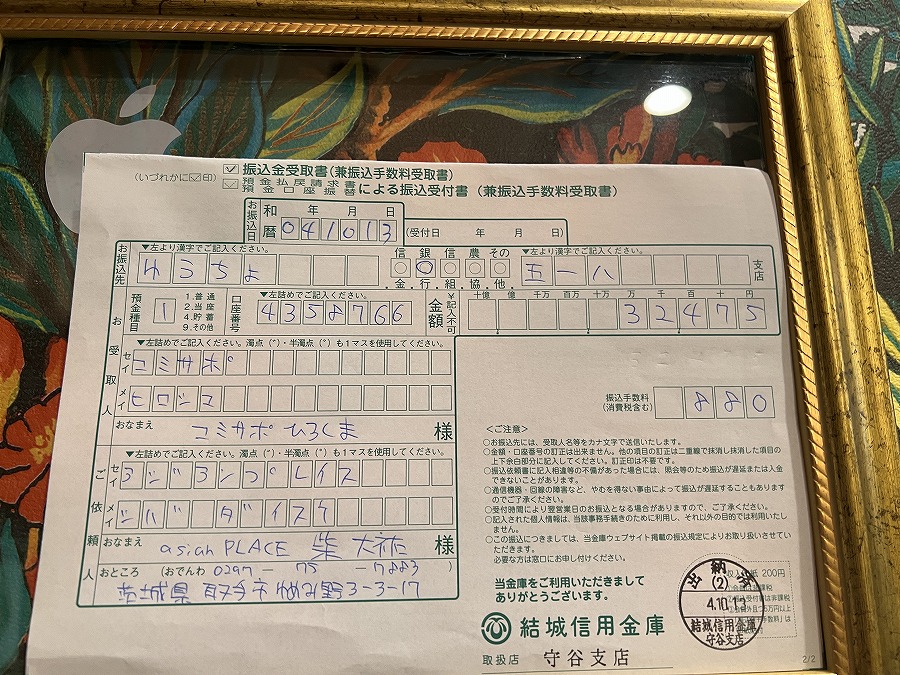 (いづれかに☑印)
☑ 振込金受取書(兼振込手数料受取書)
預金払戻請求書
預金口座振替 による振込受付書(兼振込手数料受取書)
お振込日 和暦 年 月 日 041013 (受付日 年 月 日)
お振込先
▼左より漢字でご記入ください。
ゆうちょ
信金 銀行 信組 農協 その他
▼左より漢字でご記入ください。
五一八 支店
預金種目 1 1.普通 2.当座 4.貯蓄 9.その他
口座番号 ▼左詰めでご記入ください。
4358766
金額 ¥記入不可 十億 億 千万 百万 十万 万 千 百 十 円
32475
お受取人
▼左詰めでご記入ください。濁点(゛)・半濁点(゜)も1マスを使用してください。
セイ コミサポ
メイ ヒロシマ
おなまえ コミサポ ひろしま 様
振込手数料(消費税含む) 880
ご依頼人
▼左詰めでご記入ください。濁点(゛)・半濁点(゜)も1マスを使用してください。
セイ
メイ シバ ダイスケ
おなまえ asian PLACE 柴 大祐 様
おところ (おでんわ 0297 - 75 - 7883)
茨城県取手市ゆめみ野3-3-17
<ご注意>
○お振込先には、受取人名等をカナ文字で送信いたします。
○金額・口座番号の訂正は出来ません。他の項目の訂正は二重線で抹消し抹消した項目の
上下余白部分に記入してください。訂正印は不要です。
○振込依頼書に記入相違等の不備があった場合には、照会等のため振込が遅延または入金
できないことがあります。
○通信機器・回線の障害など、やむを得ない事由によって振込が遅延することもあります
のでご了承ください。
○受付時間により翌営業日のお振込となる場合がありますので、ご了承ください。
○記入された個人情報は、当該事務手続きのために利用し、それ以外の目的では利用いたし
ません。
○この振込につきましては、当金庫ウェブサイト掲載の振込規定によりお取り扱いさせてい
ただきます。
必要な方は窓口にお申し付けください。
当金庫をご利用いただきまして
ありがとうございます。
結城信用金庫
取扱店 守谷支店
200円
出納済
(2)
4.10.13
結城信用金庫
守谷支店
2/2